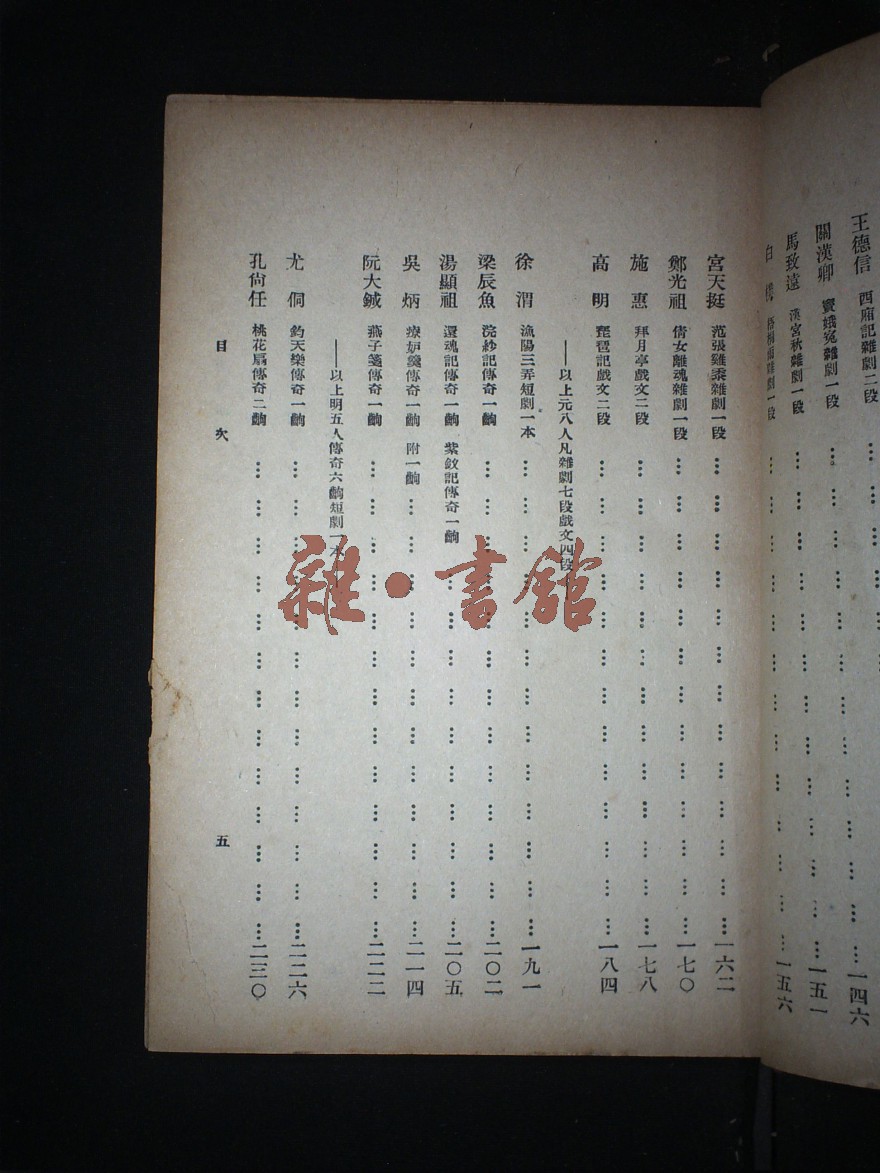 王德信 西廂記雜劇二段 …………一四六
關漢卿 竇娥冤雜劇一段 …………一五一
馬致遠 漢宮秋雜劇一段 …………一五六
白樸 梧桐雨雜劇一段
宮天挺 范張雞黍雜劇一段 …………一六二
鄭光祖 倩女離魂雜劇一段 …………一七〇
施惠 拜月亭戲文二段 …………一七八
高明 琵琶記戲文二段 …………一八四
——以上元八人凡雜劇七段戲文四段
徐渭 漁陽三弄短劇一本 …………一九一
梁辰魚 浣紗記傳奇一齣 …………二〇二
湯顯祖 還魂記傳奇一齣 紫釵記傳奇一齣 …………二〇五
吳炳 療妒羹傳奇一齣 附一齣 …………二一四
阮大鋮 燕子箋傳奇一齣 …………二二二
——以上明五人傳奇六齣短劇一本
尤侗 鈞天樂傳奇一齣 …………二二六
孔尚任 桃花扇傳奇二齣 …………二三〇
目次 五
雜·書館